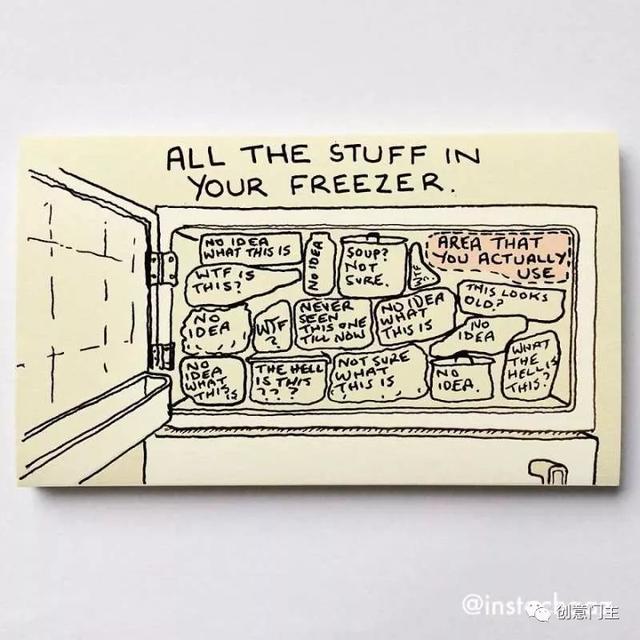 ALL THE STUFF IN
YOUR FREEZER.
NO IDEA
WHAT THIS IS
NO IDEA
SOUP?
NOT
SURE.
AREA THAT
YOU ACTUALLY
USE
WTF IS
THIS?
THIS LOOKS
OLD?
NO
IDEA
WTF
?
NEVER
SEEN
THIS ONE
TILL NOW
NO IDEA
WHAT
THIS IS
NO
IDEA
NO
IDEA
WHAT
THIS IS
THE HELL
IS THIS
???
NOT SURE
WHAT
THIS IS
NO
IDEA.
WHAT
THE
HELL IS
THIS?
创意门主